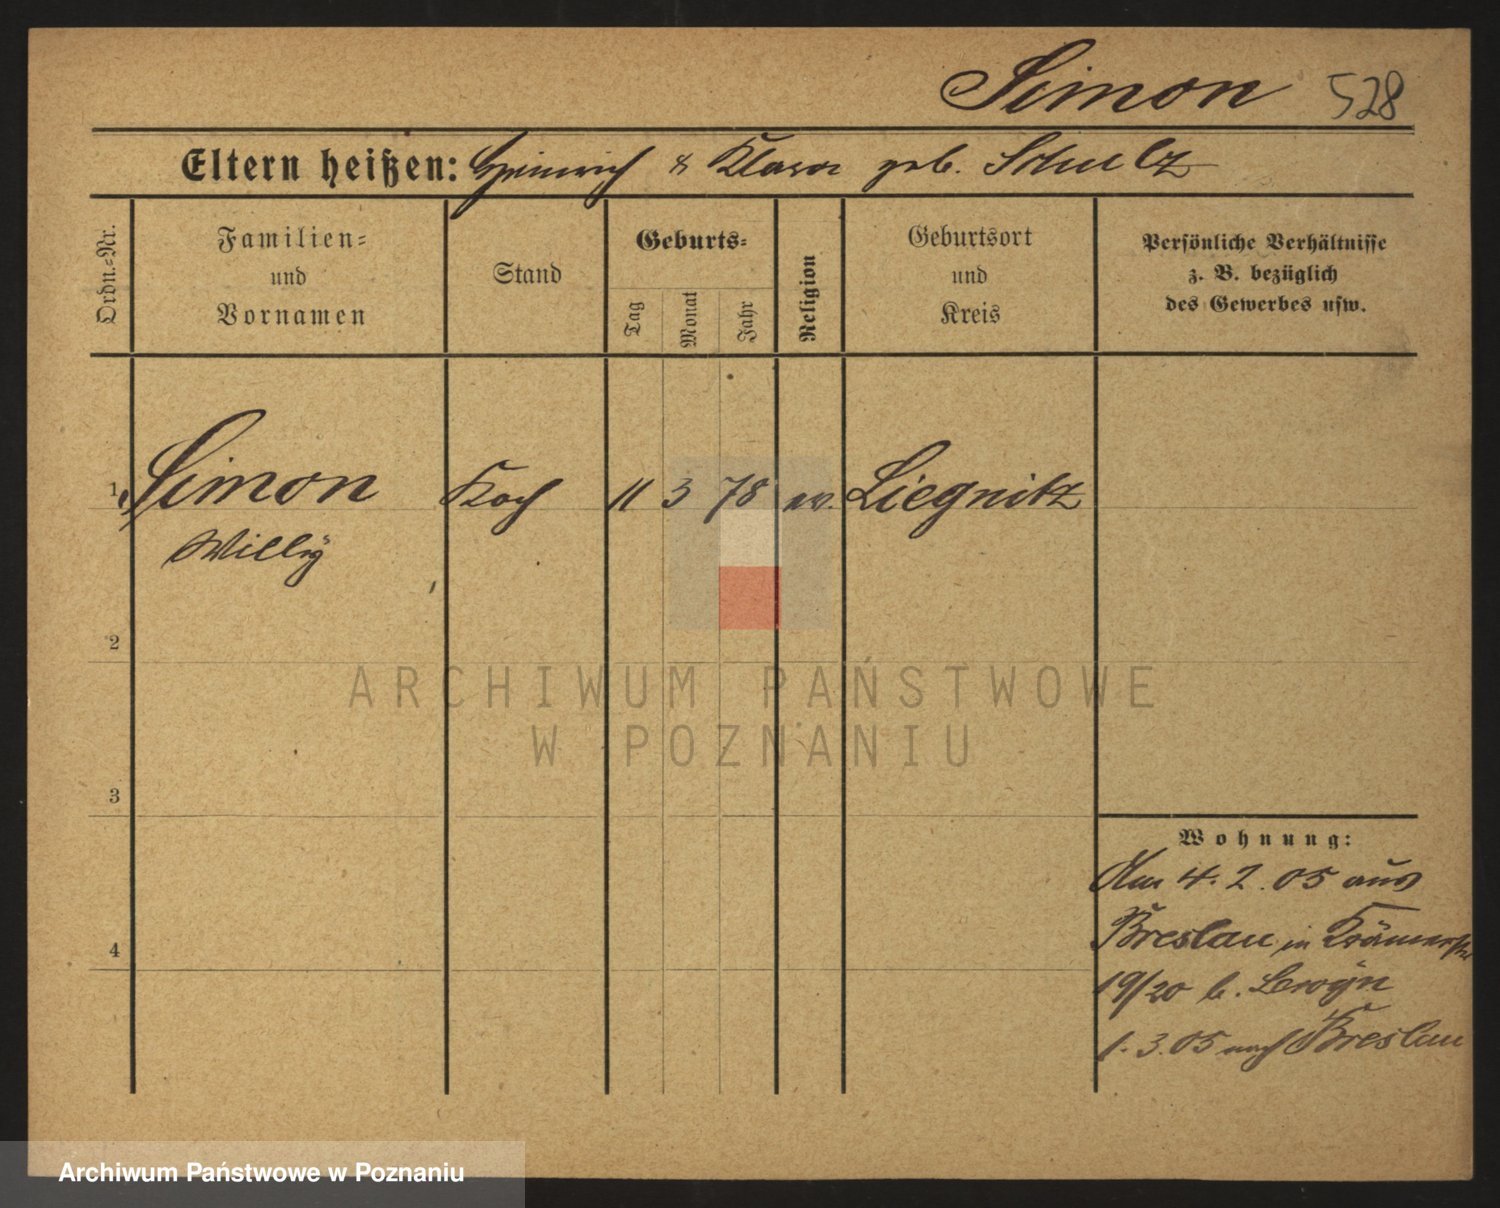 Simon 528
Eltern heißen: Heinrich & Klara geb. Schulz
Ordn.-Nr.
Familien-
und
Vornamen
Stand
Geburts-
Tag
Monat
Jahr
Religion
Geburtsort
und
Kreis
Persönliche Verhältnisse
z. B. bezüglich
des Gewerbes usw.
1 Simon Koch 11 3 78 ev. Liegnitz
Willy
2
3
4
ARCHIWUM PAŃSTWOWE
W POZNANIU
Wohnung:
Am 4. 2. 05 aus
Breslau in Krämerstr
19/20 b.
1. 3. 05 nach Breslau
Archiwum Państwowe w Poznaniu